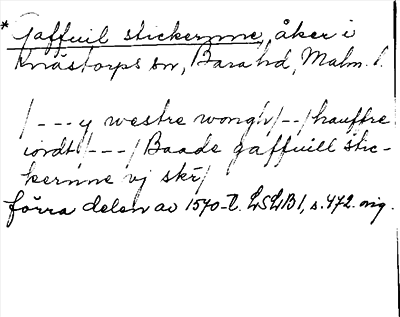 * Gaffuil stickernne, åker i
Knästorps sn, Bara hd, Malm. l.
/---y westre wongh/--/hauffre
iordt/---/Baade gaffuill stic-
kernne vj skr/
förra delen av 1570-t. LSLB1, s. 472. orig.